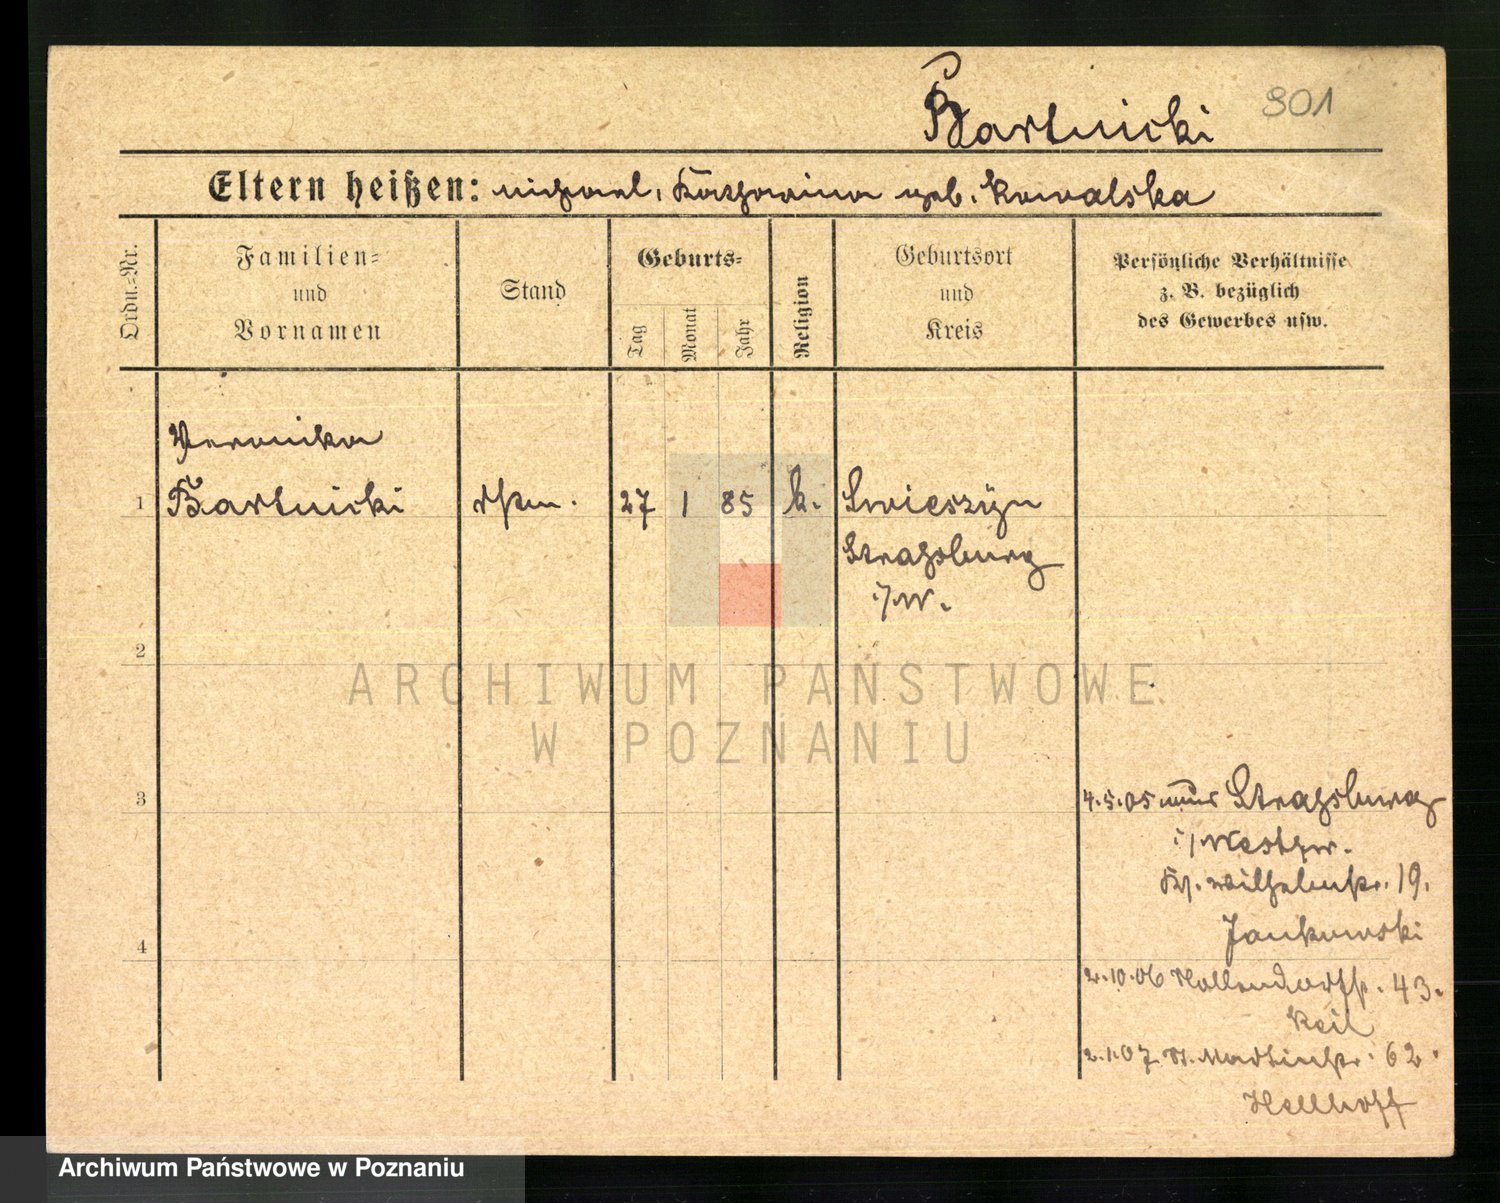 Bartnicki 901
Eltern heißen: Michael, Katharina geb. Kowalska
Ordn.-Nr.
Familien-
und
Vornamen
Stand
Geburts-
Tag
Monat
Jahr
Religion
Geburtsort
und
Kreis
Persönliche Verhältnisse
z. B. bezüglich
des Gewerbes usw.
Veronika
1 Bartnicki 27 1 85 k. Swieszyn
Strassburg
i/W.
2
ARCHIWUM PAŃSTWOWE
W POZNANIU
3 4.5.05 aus Strassburg
i/Westpr.
Kl. Wilhelmstr. 19.
Jankowski
4
2.10.06 Hollendorfstr. 43.
Keil
2.1.07 St. Martinstr. 62.
Hellhoff
Archiwum Państwowe w Poznaniu